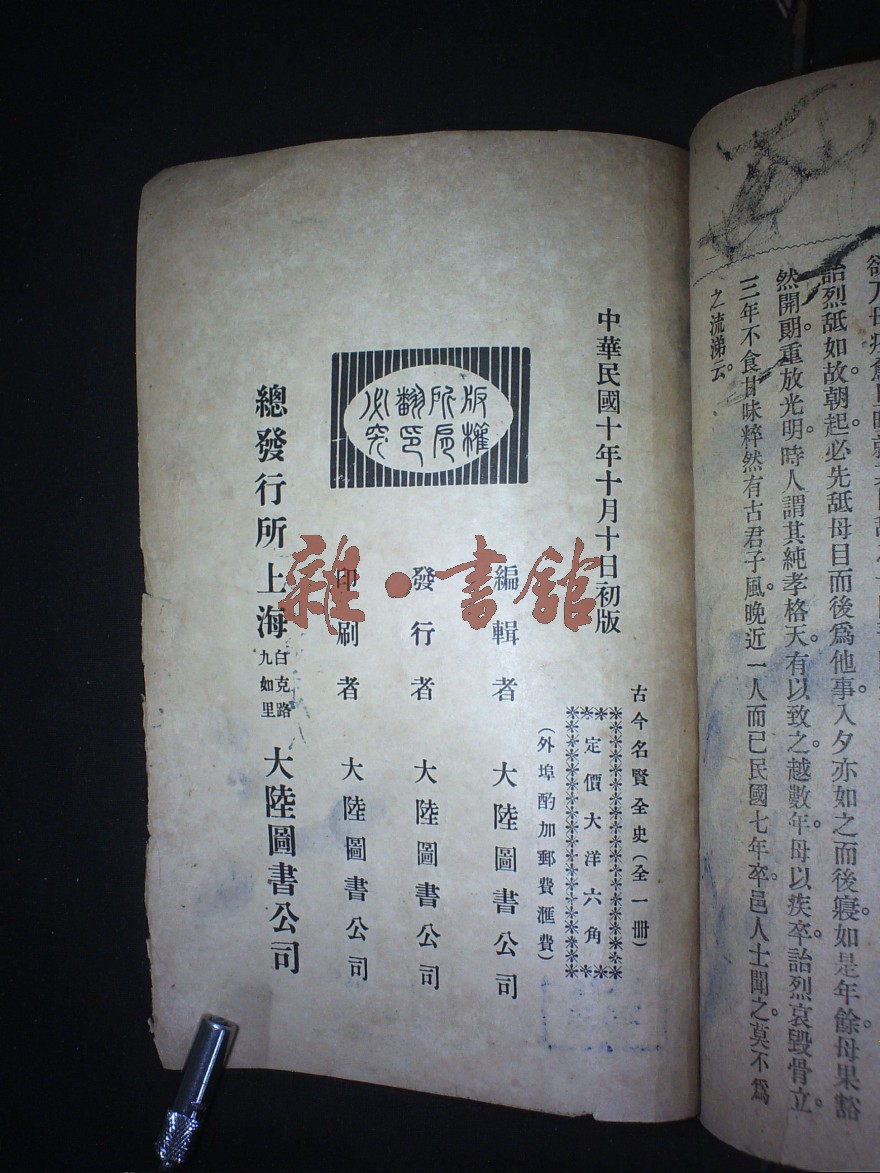 欲
詒烈舐如故。朝起必先舐母目而後爲他事。入夕亦如之而後寢如是年餘母果豁
然開朗。重放光明。時人謂其純孝格天。有以致之。越數年。母以疾卒。詒烈哀毀骨立。
三年不食甘味粹然有古君子風晚近一人而已民國七年卒。邑人士聞之。莫不爲
之流涕云。
中華民國十年十月十日初版
古今名賢全史(全一册)
定價大洋六角
(外埠酌加郵費滙費)
版權
所有
翻印
必究
編輯者 大陸圖書公司
發行者 大陸圖書公司
印刷者 大陸圖書公司
總發行所 上海 白克路九如里 大陸圖書公司
雜·書館